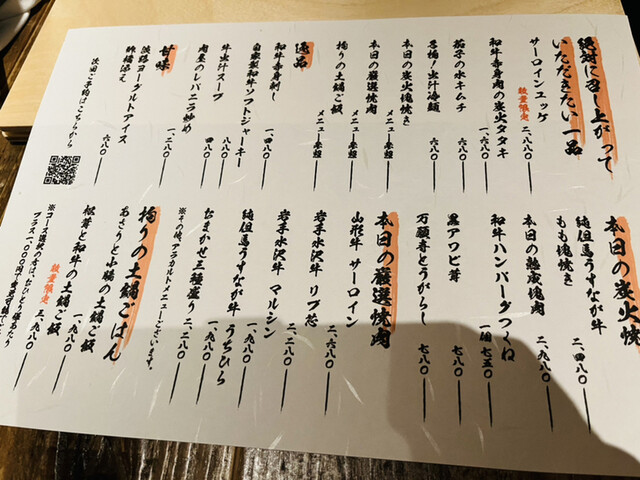 絶対に召し上がって
いただきたい一品
サーロインユッケ
数量限定 二、八八〇
和牛赤身肉の炭火タタキ
一、六八〇
茄子の水キムチ
六八〇
出汁冷麺
一、六八〇
本日の炭火塊焼き
メニュー参照
本日の厳選焼肉
メニュー参照
拘りの土鍋ご飯
メニュー参照
逸品
和牛赤身刺し
一、四八〇
自家製和牛ソフトジャーキー
八八〇
牛出汁スープ
肉屋のレバニラ炒め
一、二八〇
甘味
淡路ヨーグルトアイス
昨橘添え
六八〇
次回ご予約はこちらから
本日の炭火焼
純但馬うすなが牛
もも塊焼き
二、四八〇
本日の熟成塊肉
二、九八〇
和牛ハンバーグつくね
一個 七五〇
黒アワビ茸
七八〇
万願寺とうがらし
七八〇
本日の厳選焼肉
山形牛 サーロイン
二、六八〇
岩手水沢牛 リブ芯
二、九八〇
岩手水沢牛 マルシン
二、二八〇
純但馬うすなが牛 うちひら
一、九八〇
おまかせ三種盛り 二、八八〇
※その他アラカルトメニューございます。
拘りの土鍋ごはん
あさりと小鯛の土鍋ご飯
一、九八〇
松茸と和牛の土鍋ご飯
数量限定 三、九八〇
※コース選択の方は、おひとり様あたり
プラス一、〇〇〇円で変更可能です